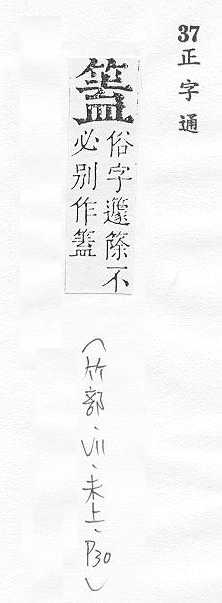 37
正字通
俗字籧篨不
必别作
（竹部、VII、未上、P30）